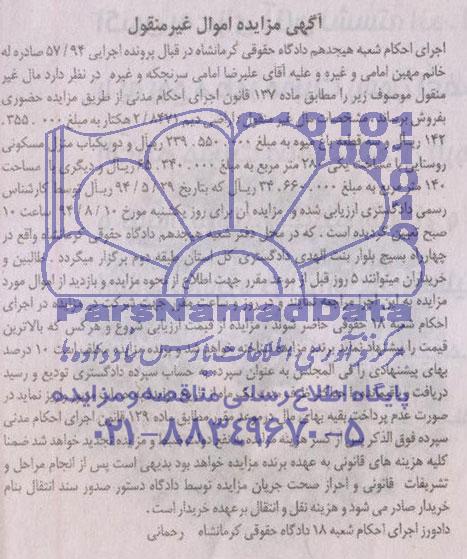 آگهی مزایده اموال غیر منقول
اجرای احکام شعبه هیجدهم دادگاه حقوقی کرمانشاه در قبال پرونده اجرایی ۵۷/۹۴ صادره له
خانم مهین امامی و غیره و علیه آقای علیرضا امامی سرنجکه و غیره در نظر دارد مال غیر
منقول موصوف زیر را مطابق ماده ۱۳۷ قانون اجرای احکام مدنی از طریق مزایده حضوری
بفروش برساند مشخصات مال غیر منقول اراضی دیم ۲/۸۴۷۱ هکتار به مبلغ ۳۵۵.۰۰۰.
۱۴۲ ریال و قطعه باغ میوه به مبلغ ۲۳۹.۵۵۰.۰۰۰ ریال و دو یکباب منزل مسکونی
روستایی با مساحت یکی ۲۸۶ متر مربع به مبلغ ۶۵.۳۴۰.۰۰۰ ریال و دیگری با مساحت
۱۴۰ متر مربع به مبلغ ۳۴.۶۶۰.۰۰۰ ریال که بتاریخ ۹۴/۵/۲۹ توسط کارشناس
رسمی دادگستری ارزیابی شده و مزایده آن برای روز یکشنبه مورخ ۹۴/۸/۱۰ ساعت ۱۰
صبح تعیین گردیده است. که در محل دفتر شعبه هیجدهم دادگاه حقوقی کرمانشاه واقع در
چهارراه بسیج بلوار بنت الهدی دادگستری کل استان طبقه دوم برگزار میگردد. طالبین و
خریداران میتوانند ۵ روز قبل از موعد مقرر جهت اطلاع از نحوه مزایده و بازدید از اموال مورد
مزایده به این اجرا مراجعه و در روز و ساعت مقرر جهت شرکت در مزایده در اجرای
احکام شعبه ۱۸ حقوقی حاضر شوند، مزایده از قیمت ارزیابی شروع و هرکس که بالاترین
قیمت را پیشنهاد نماید برنده مزایده شناخته خواهد شد و ۱۰ درصد
بهای پیشنهادی را فی المجلس به عنوان سپرده به حساب سپرده دادگستری تودیع و رسید
دریافت نماید در
صورت عدم پرداخت بقیه بهای مال در موعد مقرر مطابق ماده ۱۲۹ قانون اجرای احکام مدنی
سپرده فوق الذکر پس از کسر هزینه مزایده به نفع دولت ضبط و مزایده تجدید خواهد شد ضمنا
کلیه هزینه های قانونی به عهده برنده مزایده خواهد بود بدیهی است پس از انجام مراحل و
تشریفات قانونی و احراز صحت جریان مزایده توسط دادگاه دستور صدور سند انتقال بنام
خریدار صادر می شود و هزینه نقل و انتقال بر عهده خریدار است.
دادورز اجرای احکام شعبه ۱۸ دادگاه حقوقی کرمانشاه رحمانی
ParsNamadData
مرکز فرآوری اطلاعات پارس نماد داده ها
پایگاه اطلاع رسانی مناقصه و مزایده
۰۲۱-۸۸۳۴۹۶۷۰-۵